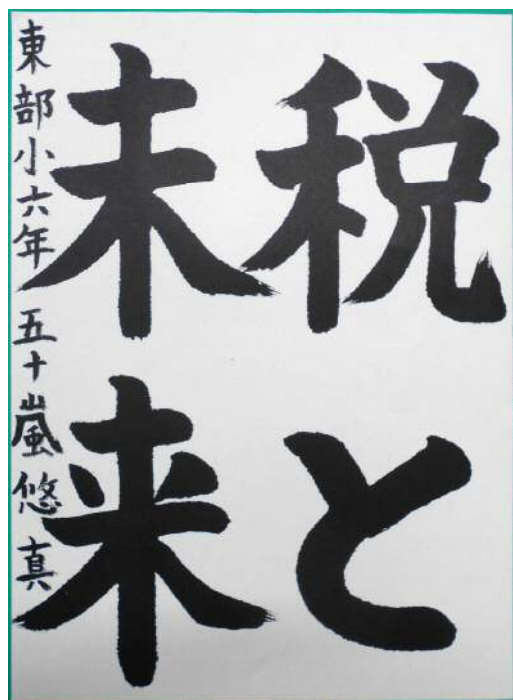 税と
未来
東部小六年 五十嵐悠真